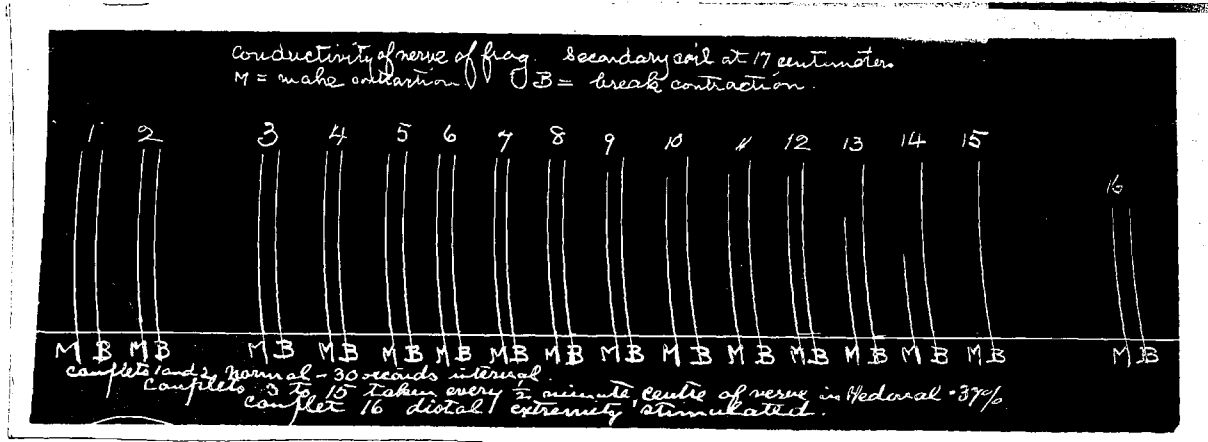 Conductivity of nerve of frog. Secondary coil at 17 centimeters
M = make contraction B = break contraction.
1 2 3 4 5 6 7 8 9 10 11 12 13 14 15 16
M B M B M B M B M B M B M B M B M B M B M B M B M B M B M B M B
Couplets 1 and 2, Normal - 30 seconds interval.
Couplets 3 to 15 taken every 1/2 minute, centre of nerve in Hedonal · 37%
Couplet 16 distal extremity stimulated.